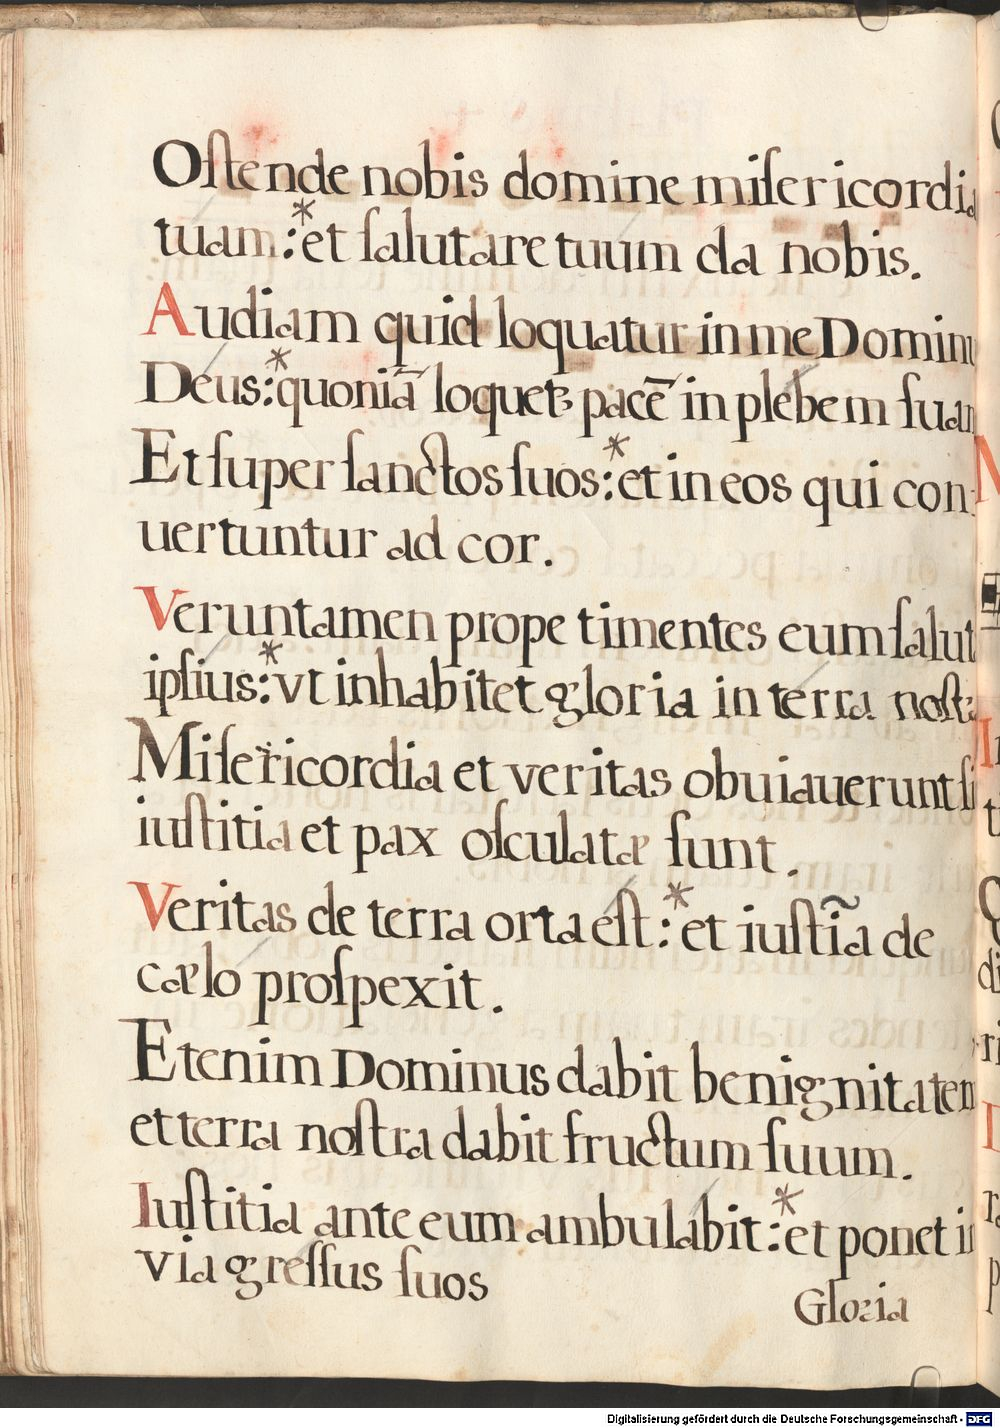 Oſtende nobis domine miſericordia
tuam :* et ſalutare tuum da nobis.
Audiam quid loquatur in me Dominu
Deus :* quoniã loquetꝫ pacē in plebem ſuam
Et ſuper ſanctos ſuos :* et in eos qui con-
uertuntur ad cor.
Veruntamen prope timentes eum ſalut
ipſius :* vt inhabitet gloria in terra noſt
Miſericordia et veritas obuiauerunt ſi
iuſtitia et pax oſculatæ ſunt.
Veritas de terra orta eſt :* et iuſtĩa de
cælo proſpexit.
Etenim Dominus dabit benignitatem
et terra noſtra dabit fructum ſuum.
Iuſtitia ante eum ambulabit :* et ponet in
via greſſus ſuos
Gloria
Digitalisierung gefördert durch die Deutsche Forschungsgemeinschaft - DFG